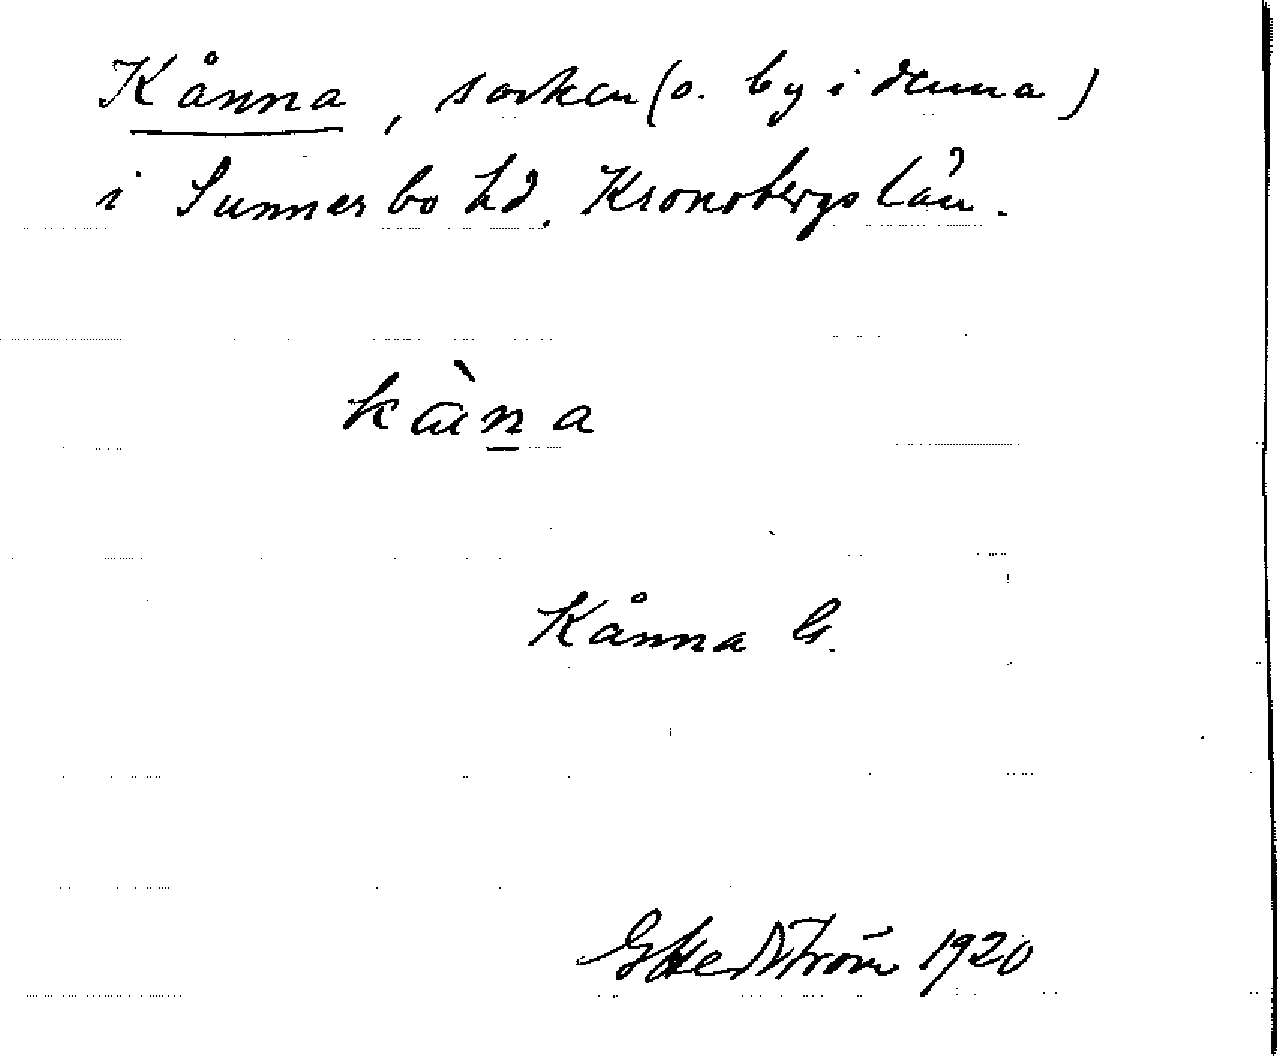 Kånna, socken (o. by i denna)
i Sunnerbo hd. Kronobergs län.
Kånna G.
G Hedström 1920